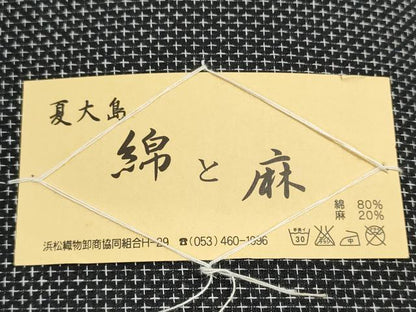 夏大島
綿と麻
綿 80%
麻 20%
手洗イ
30
中
浜松織物卸商協同組合H-29 ☎(053)460-1996